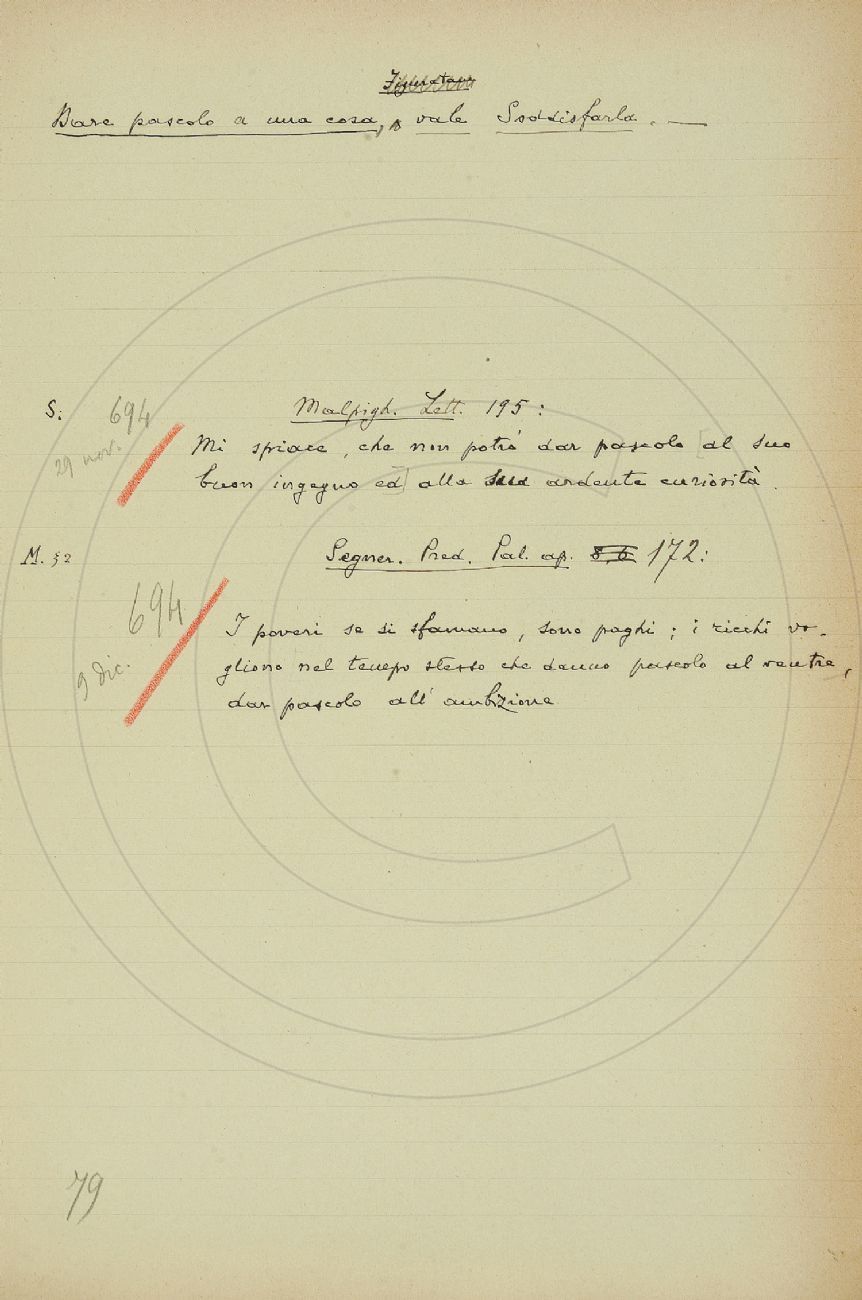 Figuratam
Dare pascolo a una cosa, vale Soddisfarla. —
S: 694 Malpigh. Lett. 195:
29 nov. Mi spiace, che non potrò dar pascolo [al suo
buon ingegno ed] alla sua ardente curiosità.
M. § 2 Segner. Pred. Pal. ap. 8 6 172:
694
I poveri se si sfamano, sono paghi; i ricchi vo-
9 dic. gliono nel tempo stesso che danno pascolo al ventre,
dar pascolo all' ambizione
79